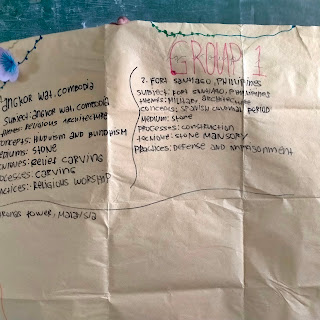 GROUP 1
ANGKOR WAT, COMBODIA
SUBJECT: ANGKOR WAT, COMBODIA
RELIGIOUS ARCHITECTURE
CONCEPTS: HINDUISM AND BUDDHISM
STONE
RELIEF CARVING
PROCESSES: CARVING
RELIGIOUS WORSHIP
2. FORT SANTIAGO, PHILIPPINES
SUBJECT: FORT SANTIAGO, PHILIPPINES
MILITARY ARCHITECTURE
CONCEPTS: SPANISH COLONIAL PERIOD
MEDIUM: STONE
PROCESSES: CONSTRUCTION
STONE MANSORY
PRACTICES: DEFENSE AND IMPRISONMENT
TOWER, MALAYSIA